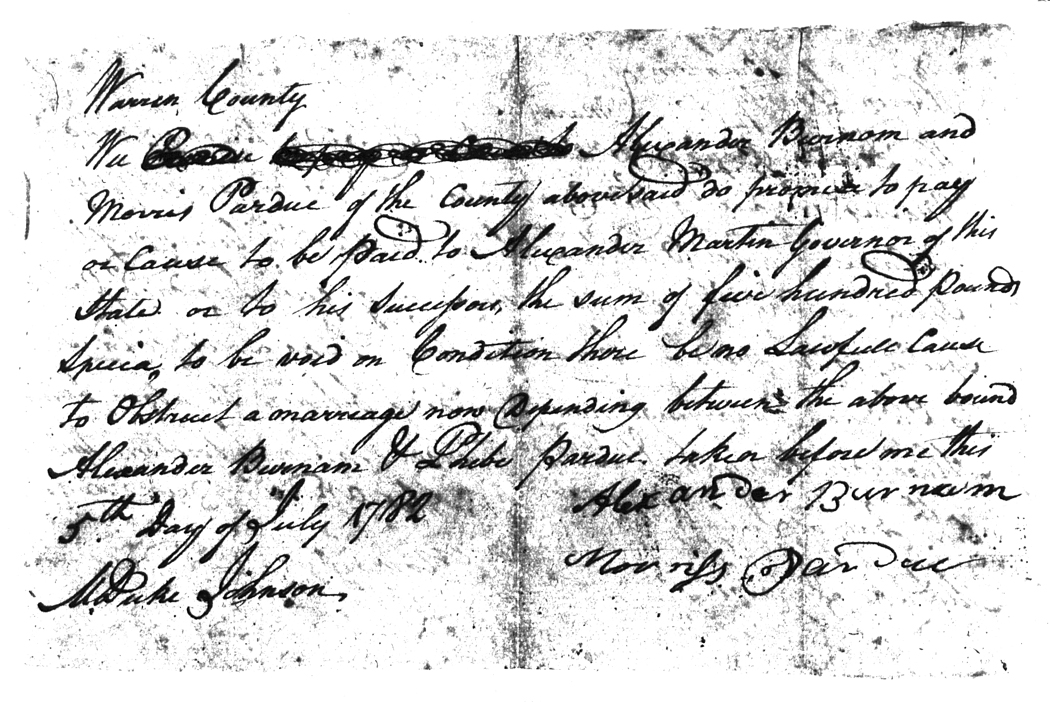 Warren County
We Alexander Burnam and
Morris Pardue of the County abovesaid do promise to pay
or Cause to be paid to Alexander Martin Governor of this
State or to his Successors, the sum of five hundred pounds
Specia, to be void on Condition there be no Lawfull Cause
to Obstruct a marreage now Depending between the above bound
Alexander Burnam & Phebe Pardue taken before me this
5th Day of July 1782
Alexander Burnam
Morriss Pardue
M. Duke Johnson.